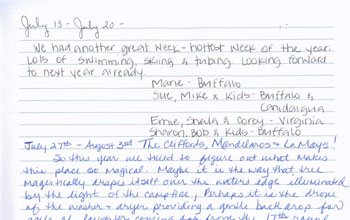 July 13 - July 20 -
We had another great week - hottest week of the year.
Lots of swimming, skiing & tubing. Looking forward
to next year already.
Marie - Buffalo
Sue, Mike & Kids - Buffalo &
Candaigua
Ernie, Shaila & Corey - Virginia
Sharon, Bob & Kids - Buffalo
July 27th - August 3rd The Cliffords, Mandelaros & LaMays!
So this year we tried to figure out what makes
this place so magical. Maybe it is the way that tree
majestically drapes itself over the waters edge illuminated
by the light of the campfire. Perhaps it is the drone
of the washer & dryer providing a gentle back drop for
of laughter coming from the 17th round